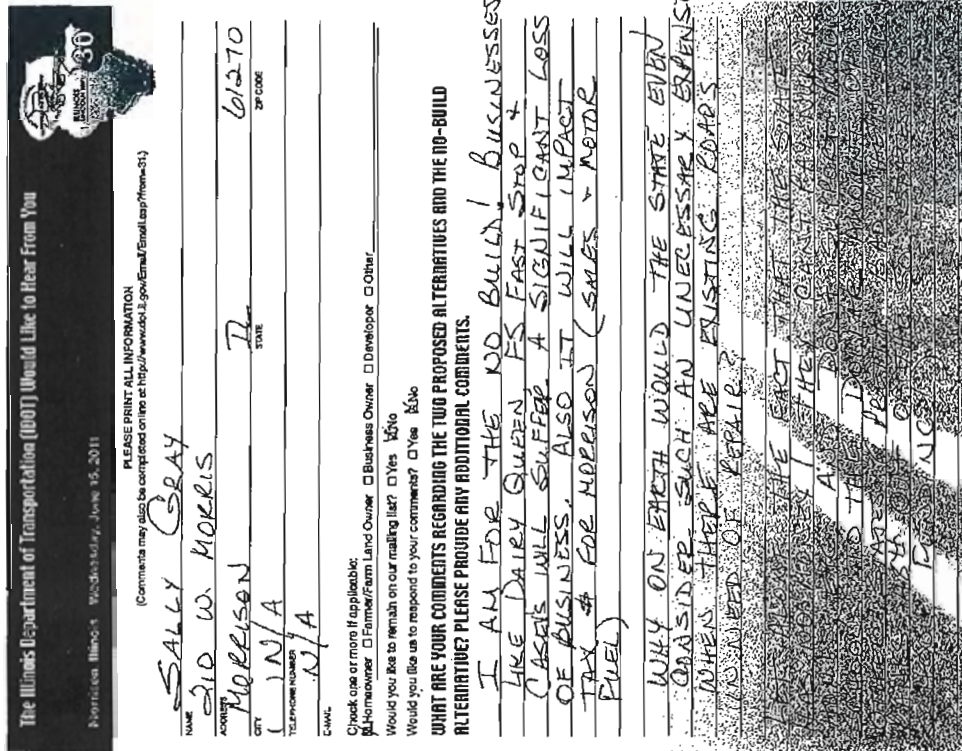 The Illinois Department of Transportation (IDOT) Would Like to Hear From You
Morrison Illinois Wednesday, June 15, 2011
30
PLEASE PRINT ALL INFORMATION
(Comments may also be completed online at http://www.dot.il.gov/Email/Email.asp?from=31.)
SALLY GRAY
NAME
210 W. MORRIS
ADDRESS
MORRISON IL 61270
CITY STATE ZIP CODE
( N/A
TELEPHONE NUMBER
N/A
E-MAIL
Check one or more if applicable:
☒ Homeowner ☐ Farmer/Farm Land Owner ☐ Business Owner ☐ Developer ☐ Other
Would you like to remain on our mailing list? ☐ Yes ☒ No
Would you like us to respond to your comments? ☐ Yes ☒ No
WHAT ARE YOUR COMMENTS REGARDING THE TWO PROPOSED ALTERNATIVES AND THE NO-BUILD
ALTERNATIVE? PLEASE PROVIDE ANY ADDITIONAL COMMENTS.
I AM FOR THE NO BUILD! BUSINESSES
LIKE DAIRY QUEEN FS FAST STOP &
CASEY'S WILL SUFFER A SIGNIFICANT LOSS
OF BUSINESS. ALSO IT WILL IMPACT
TAX $ FOR MORRISON (SALES & MOTOR
FUEL)
WHY ON EARTH WOULD THE STATE EVEN
CONSIDER SUCH AN UNECESSARY EXPENSE
WHEN THERE ARE EXISTING ROADS
IN NEED OF REPAIR?
THE FACT THAT THE STATE
THEY CAN'T FUND